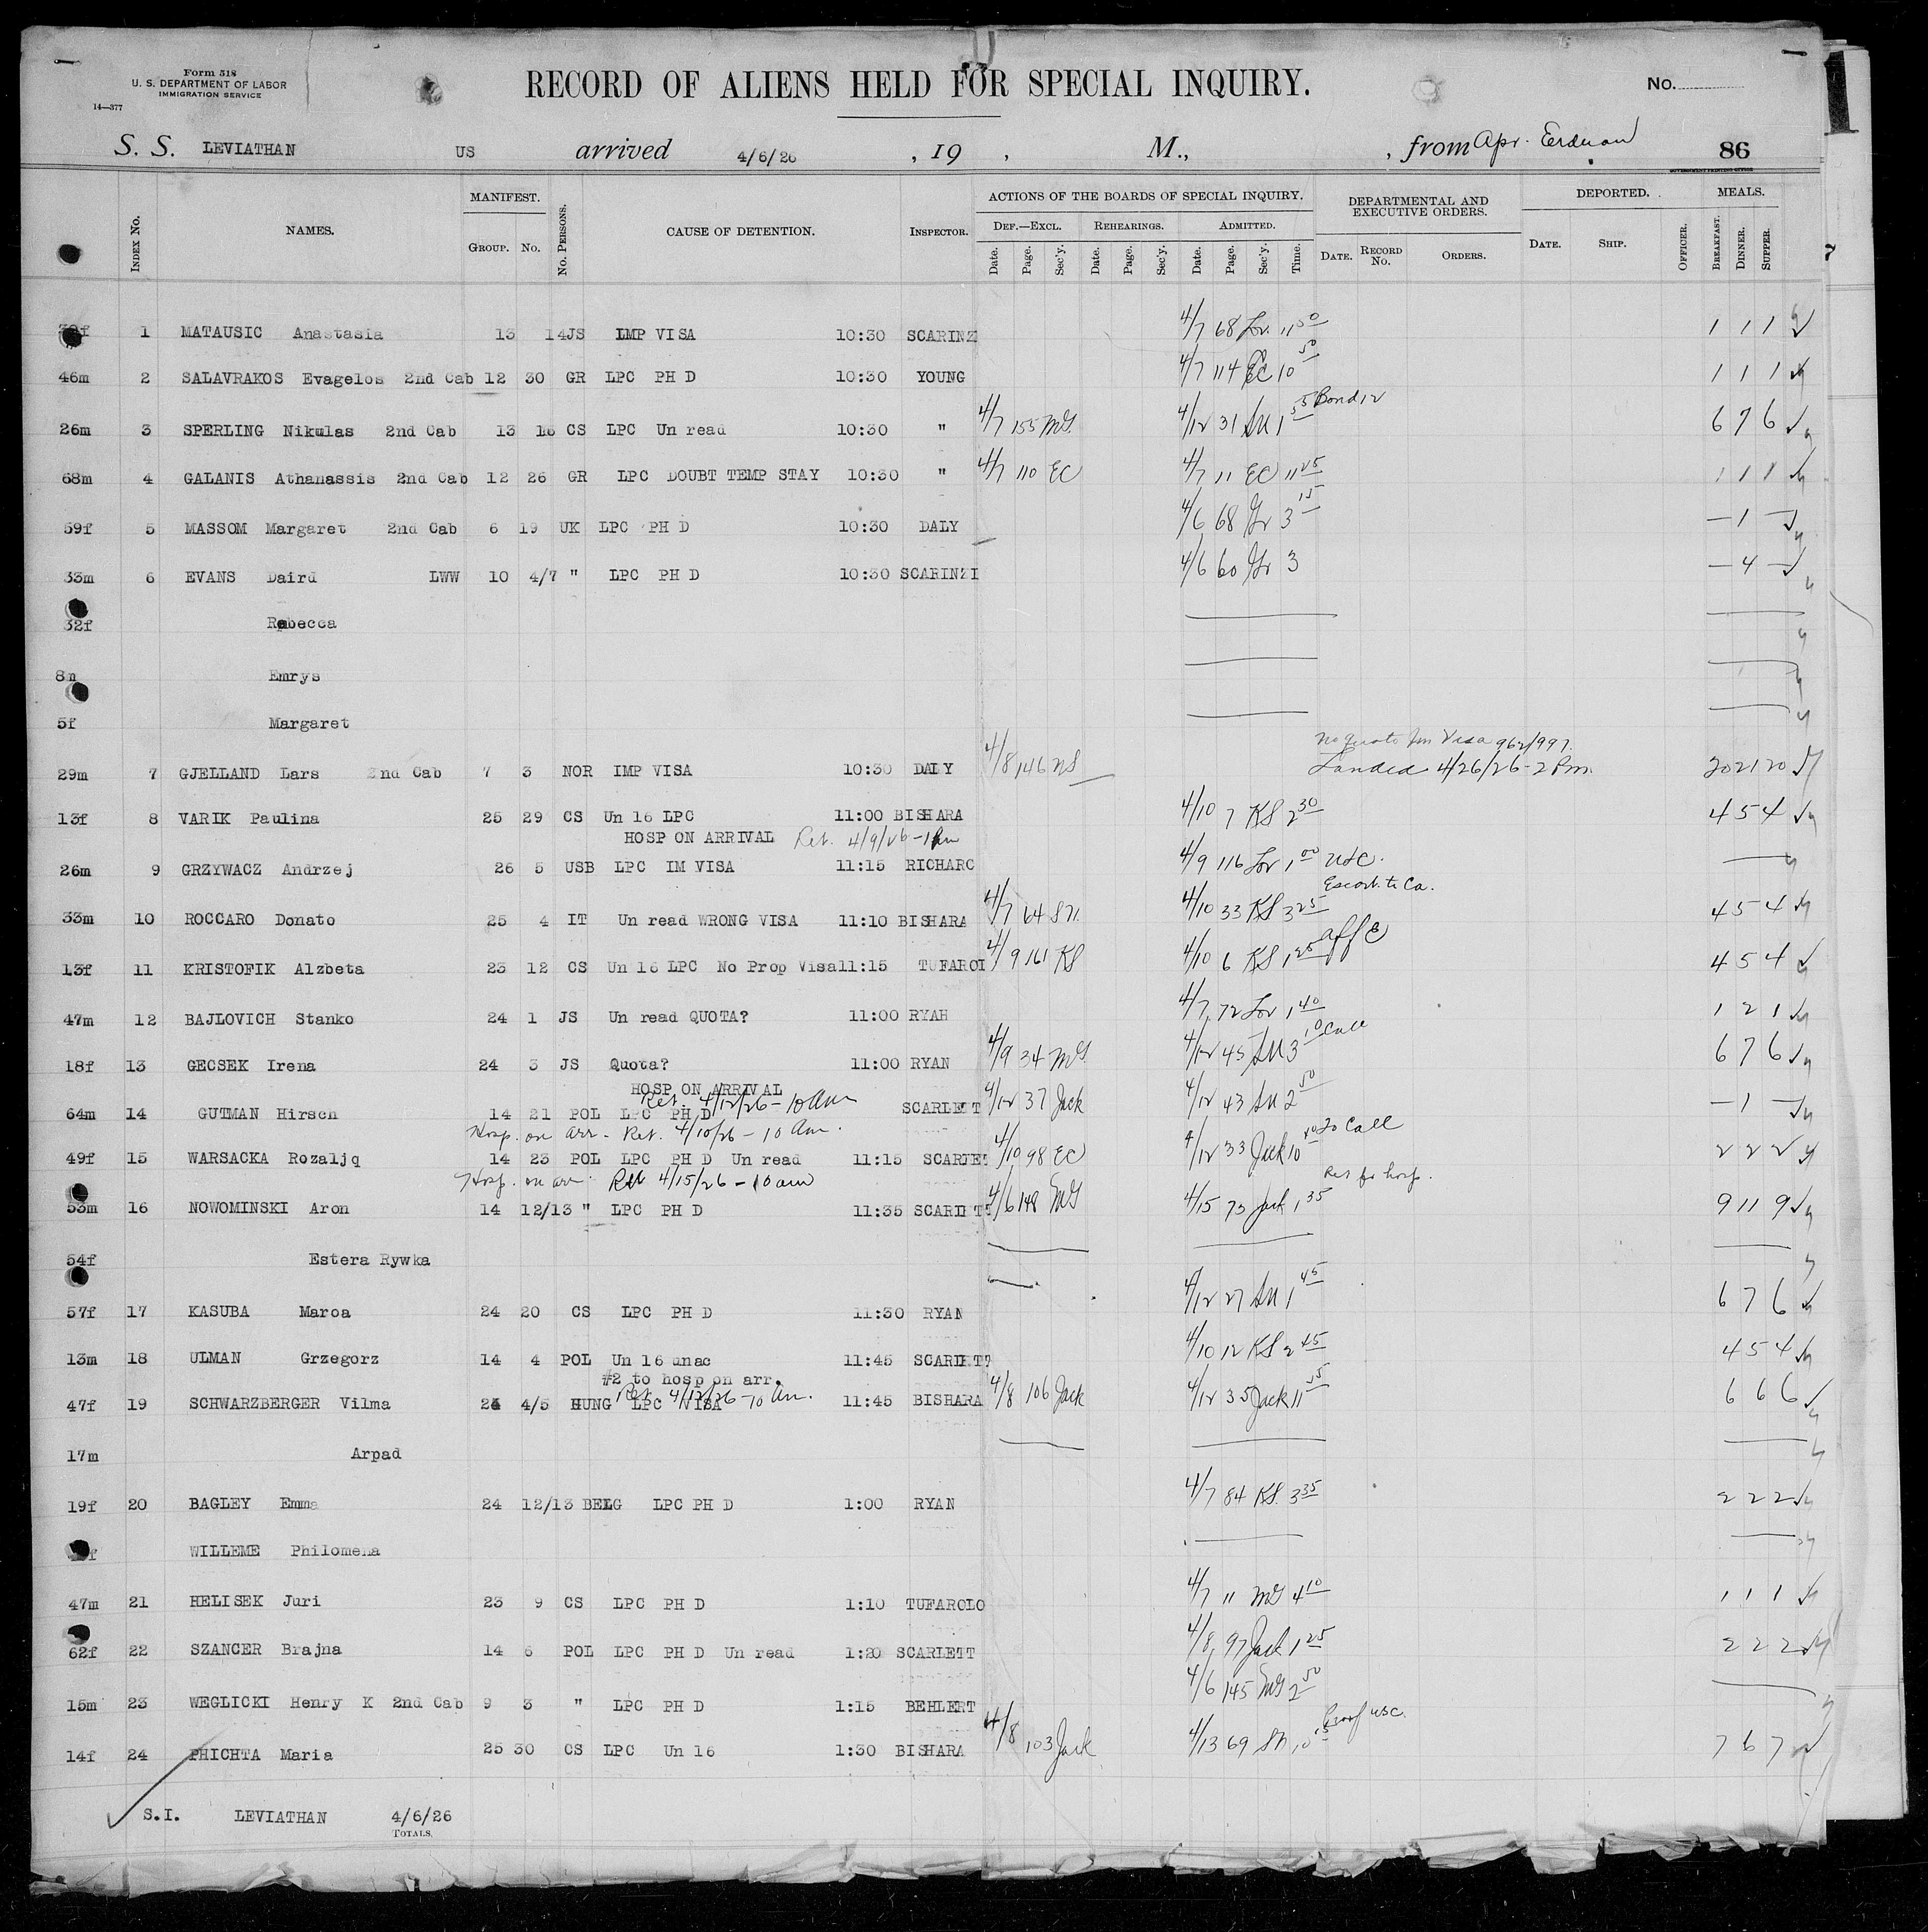 Form 518
U. S. DEPARTMENT OF LABOR
IMMIGRATION SERVICE
14—377
RECORD OF ALIENS HELD FOR SPECIAL INQUIRY.
No.
S. S. LEVIATHAN US arrived 4/6/26 , 19 , M., , from Apr. 86
GOVERNMENT PRINTING OFFICE
INDEX No. NAMES. MANIFEST. GROUP. No. No. PERSONS. CAUSE OF DETENTION. INSPECTOR. ACTIONS OF THE BOARDS OF SPECIAL INQUIRY. DEF.—EXCL. Date. Page. Sec'y. REHEARINGS. Date. Page. Sec'y. ADMITTED. Date. Page. Sec'y. Time. DEPARTMENTAL AND EXECUTIVE ORDERS. DATE. RECORD No. ORDERS. DEPORTED. DATE. SHIP. OFFICER. MEALS. BREAKFAST. DINNER. SUPPER.
1 MATAUSIC Anastasia 13 14 JS IMP VISA 10:30 SCARINZ 4/7 68 Lov. 11 50 1 1 1
46m 2 SALAVRAKOS Evagelos 2nd Cab 12 30 GR LPC PH D 10:30 YOUNG 4/7 114 EC 10 50 1 1 1
26m 3 SPERLING Nikulas 2nd Cab 13 16 CS LPC Un read 10:30 " 4/7 155 McG 4/12 31 SM 1 55 Bond 12 6 7 6
68m 4 GALANIS Athanassis 2nd Cab 12 26 GR LPC DOUBT TEMP STAY 10:30 " 4/7 110 EC 4/7 11 EC 11 25 1 1 1
59f 5 MASSOM Margaret 2nd Cab 6 19 UK LPC PH D 10:30 DALY 4/6 68 Gr 3 15 — 1 —
33m 6 EVANS Daird LWW 10 4/7 " LPC PH D 10:30 SCARINZI 4/6 60 Gr 3 — 4 —
32f Rebecca
8m Emrys
5f Margaret
No quota Imm Visa 962/997.
29m 7 GJELLAND Lars 2nd Cab 7 3 NOR IMP VISA 10:30 DALY 4/8 146 NS Landed 4/26/26 - 2 Pm. 20 21 20
13f 8 VARIK Paulina 25 29 CS Un 16 LPC 11:00 BISHARA 4/10 7 KS 2 30 4 5 4
HOSP ON ARRIVAL Ret. 4/9/26 - 1 Pm
26m 9 GRZYWACZ Andrzej 26 5 USB LPC IM VISA 11:15 RICHARC 4/9 116 Lov 1 00 USC.
Escort to Ca.
33m 10 ROCCARO Donato 25 4 IT Un read WRONG VISA 11:10 BISHARA 4/7 64 SN. 4/10 33 KS 3 25 4 5 4
13f 11 KRISTOFIK Alzbeta 23 12 CS Un 16 LPC No Prop Visa 11:15 TUFAROI 4/9 161 KS 4/10 6 KS 1 25 4 5 4
47m 12 BAJLOVICH Stanko 24 1 JS Un read QUOTA? 11:00 RYAH 4/7 72 Lov 1 40 1 2 1
18f 13 GECSEK Irena 24 3 JS Quota? 11:00 RYAN 4/9 34 McG 4/12 45 SM 3 10 Call 6 7 6
HOSP ON ARRIVAL
Ret. 4/12/26 - 10 am
64m 14 GUTMAN Hirsch 14 21 POL LPC PH D SCARLETT 4/12 37 Jack 4/12 43 SM 2 50 — 1 —
Hosp. on arr. - Ret. 4/10/26 - 10 Am.
49f 15 WARSACKA Rozaljq 14 23 POL LPC PH D Un read 11:15 SCARLET 4/10 98 EC 4/12 33 Jack 10 40 To Call 2 2 2
Hosp. on arr. Ret 4/15/26 - 10 am Ret fr hosp.
53m 16 NOWOMINSKI Aron 14 12/13 " LPC PH D 11:35 SCARLETT 4/6 148 McG 4/15 73 Jack 1 35 9 11 9
54f Estera Rywka
57f 17 KASUBA Maroa 24 20 CS LPC PH D 11:30 RYAN 4/12 27 SM 1 45 6 7 6
13m 18 ULMAN Grzegorz 14 4 POL Un 16 unac 11:45 SCARLETT 4/10 12 KS 2 45 4 5 4
#2 to hosp on arr.
Ret. 4/12/26 - 10 Am.
47f 19 SCHWARZBERGER Vilma 24 4/5 HUNG LPC VISA 11:45 BISHARA 4/8 106 Jack 4/12 35 Jack 11 15 6 6 6
17m Arpad
19f 20 BAGLEY Emma 24 12/13 BELG LPC PH D 1:00 RYAN 4/7 84 KS. 3 35 2 2 2
WILLEME Philomena
47m 21 HELISEK Juri 23 9 CS LPC PH D 1:10 TUFAROLO 4/7 11 McG 4 10 1 1 1
62f 22 SZANCER Brajna 14 6 POL LPC PH D Un read 1:20 SCARLETT 4/8 97 Jack 1 25 2 2 2
15m 23 WEGLICKI Henry K 2nd Cab 9 3 " LPC PH D 1:15 BEHLERT 4/6 145 McG 2 50
14f 24 PHICHTA Maria 25 30 CS LPC Un 16 1:30 BISHARA 4/8 103 Jack 4/13 69 SN 10 15 Proof USC. 7 6 7
S.I. LEVIATHAN 4/6/26
TOTALS.